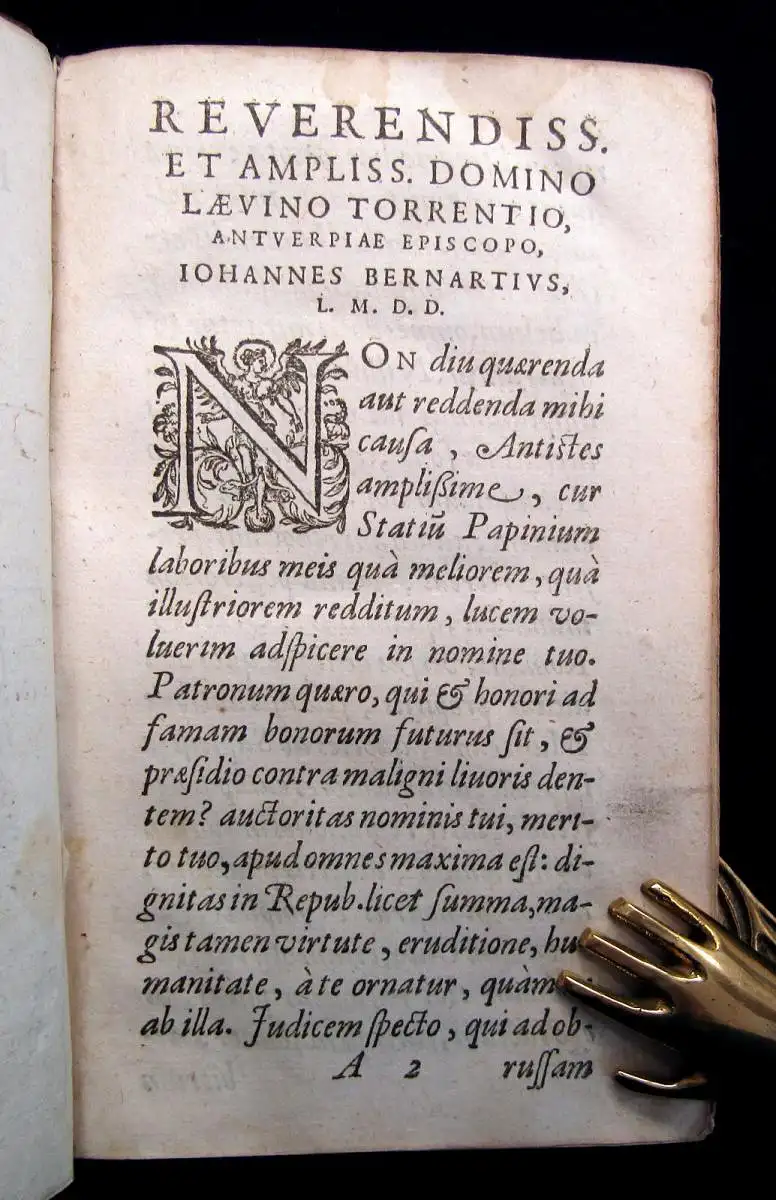 REVERENDISS.
ET AMPLISS. DOMINO
LÆVINO TORRENTIO,
ANTVERPIAE EPISCOPO,
IOHANNES BERNARTIVS,
L. M. D. D.
NON diu quærenda
aut reddenda mihi
cauſa, Antistes
ampliſsime, cur
Statiũ Papinium
laboribus meis quà meliorem, quà
illuſtriorem redditum, lucem vo-
luerim adſpicere in nomine tuo.
Patronum quæro, qui & honori ad
famam bonorum futurus ſit, &
præſidio contra maligni liuoris den-
tem? auctoritas nominis tui, meri-
to tuo, apud omnes maxima eſt: di-
gnitas in Repub. licet ſumma, ma-
gis tamen virtute, eruditione, hu
manitate, à te ornatur, quàm
ab illa. Judicem ſpecto, qui ad ob-
A 2 ruſſam